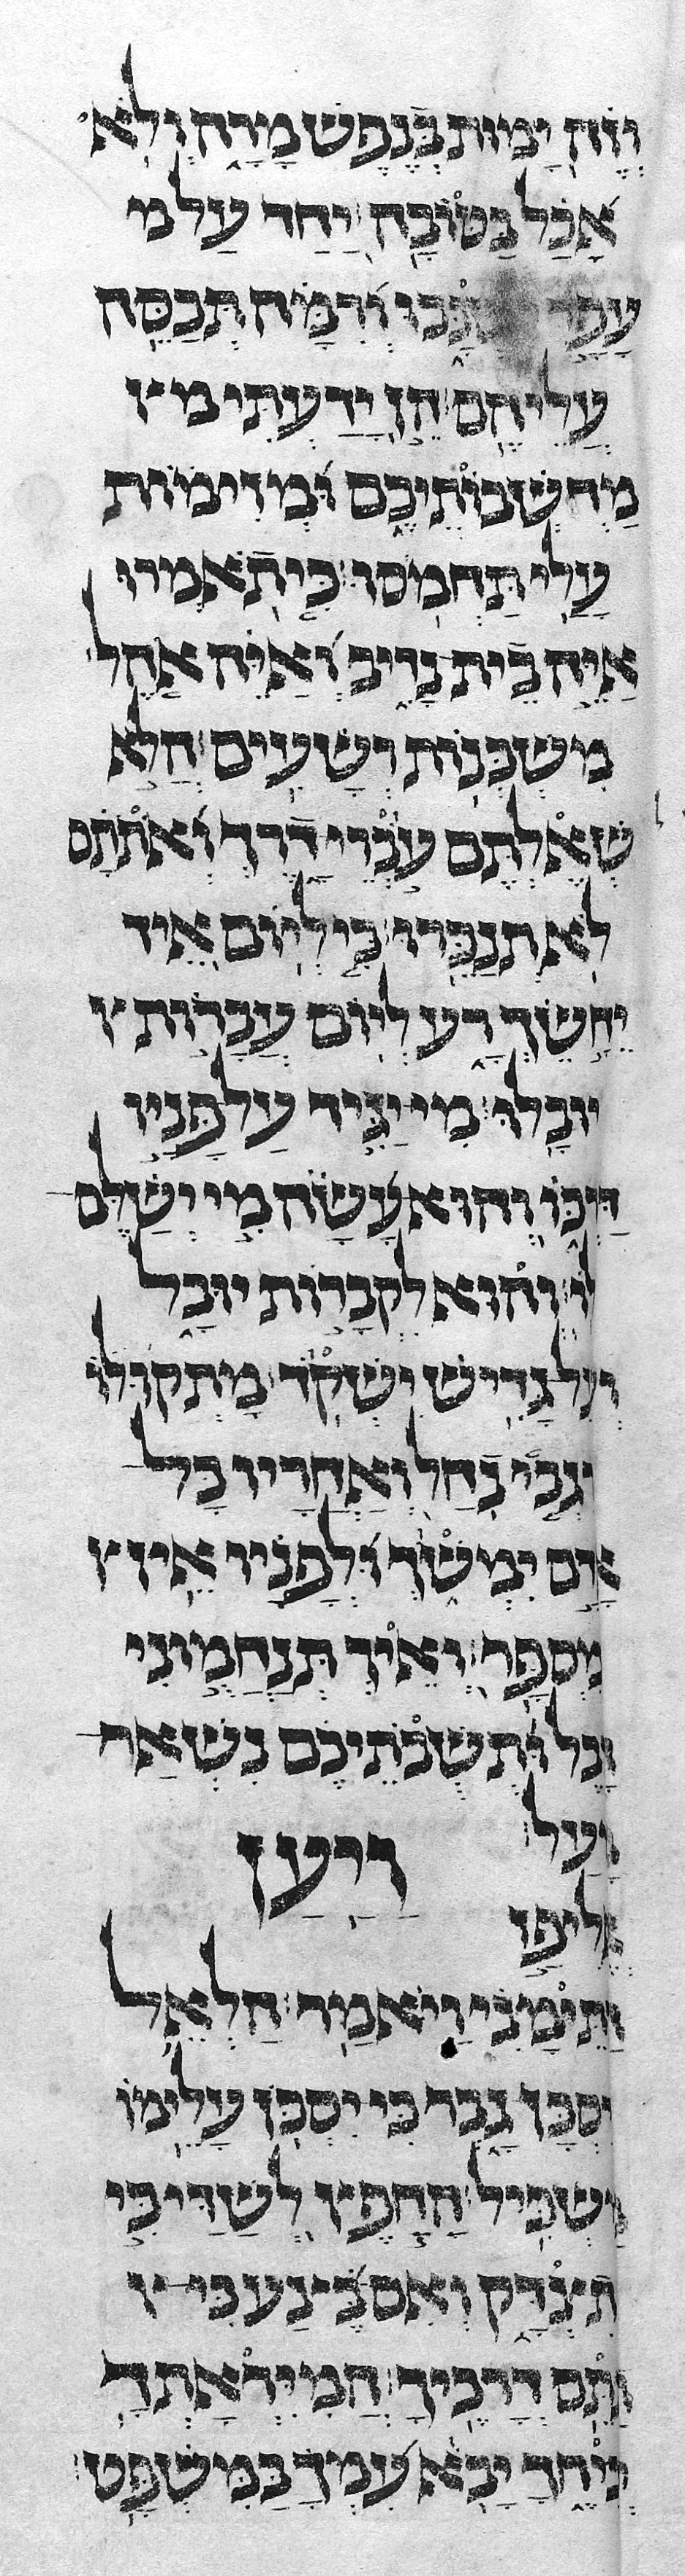 וְזֶה יָמוּת בְּנֶפֶשׁ מָרָה וְלֹא
אָכַל בַּטּוֹבָה׃ יַחַד עַל
עָפָר וְרִמָּה תְּכַסֶּה
עֲלֵיהֶם׃ הֵן יָדַעְתִּי
מַחְשְׁבוֹתֵיכֶם וּמְזִימּוֹת
עָלַי תַּחְמֹסוּ׃ כִּי תֹאמְרוּ
אַיֵּה בֵית נָדִיב וְאַיֵּה אֹהֶל
מִשְׁכְּנוֹת רְשָׁעִים׃ הֲלֹא
שְׁאֶלְתֶּם עֹבְרֵי דָרֶךְ וְאֹתֹתָם
לֹא תְנַכֵּרוּ׃ כִּי לְיוֹם אֵיד
יֵחָשֶׂךְ רָע לְיוֹם עֲבָרוֹת
יוּבָלוּ׃ מִי יַגִּיד עַל פָּנָיו
דַּרְכּוֹ וְהוּא עָשָׂה מִי יְשַׁלֶּם
לוֹ׃ וְהוּא לִקְבָרוֹת יוּבָל
וְעַל גָּדִישׁ יִשְׁקֹד׃ מָתְקוּ לוֹ
רִגְבֵי נָחַל וְאַחֲרָיו כָּל
אָדָם יִמְשֹׁךְ וּלְפָנָיו אֵין
מִסְפָּר׃ וְאֵיךְ תְּנַחֲמוּנִי
הָבֶל וּתְשֻׁבֹתֵיכֶם נִשְׁאַר
מָעַל׃ וַיַּעַן
אֱלִיפַז
הַתֵּימָנִי וַיֹּאמַר׃ הַלְאֵל
יִסְכָּן גָּבֶר כִּי יִסְכֹּן עָלֵימוֹ
מַשְׂכִּיל׃ הַחֵפֶץ לְשַׁדַּי כִּי
תִצְדָּק וְאִם בֶּצַע כִּי
תַתֵּם דְּרָכֶיךָ׃ הֲמִיִּרְאָתְךָ
יֹכִיחֶךָ יָבֹא עִמְּךָ בַּמִּשְׁפָּט׃